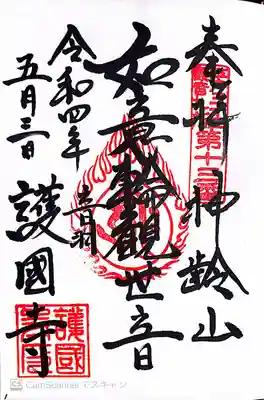 奉拝 神齢山
第十三番
如意輪観世音
音羽
護國寺
令和四年
五月三日
護國寺
CamScanner でスキャン